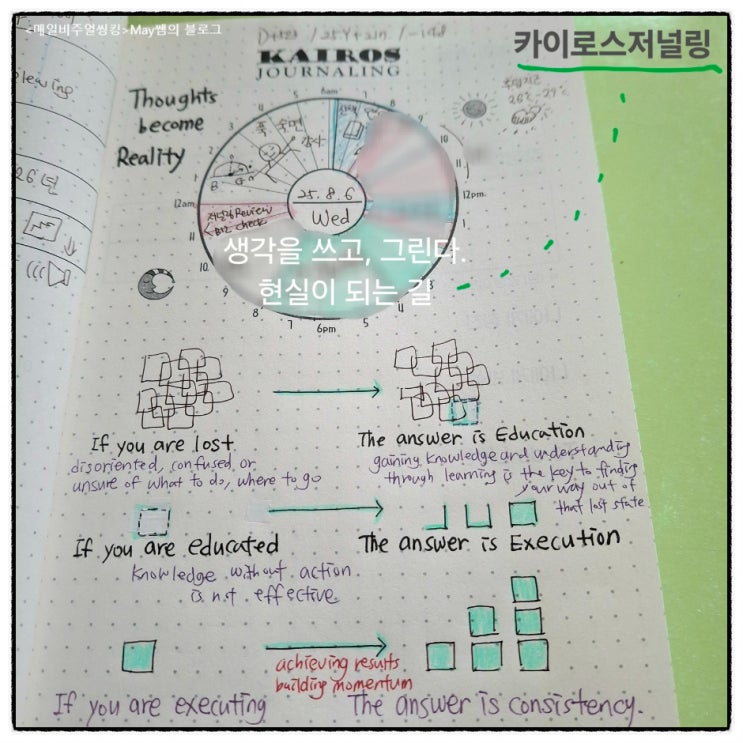 <매일비주얼씽킹>May쌤의 블로그
카이로스저널링
KAIROS
JOURNALING
Thoughts
become
Reality
6am
7
8
9
10
11
12pm.
3
4
5
6pm
7
8
9
10
11
12am
2
3
4
25.8.6
Wed
저널링 Review
B12 check
26℃-29℃
26년
생각을 쓰고, 그린다.
현실이 되는 길
If you are lost
disoriented, confused or
unsure of what to do, where to go
The answer is Education
gaining knowledge and understanding
through learning is the key to finding
your way out of
that lost state
If you are educated
Knowledge without action
is not effective.
The answer is Execution
achieving results
building momentum
If you are executing
The answer is consistency.